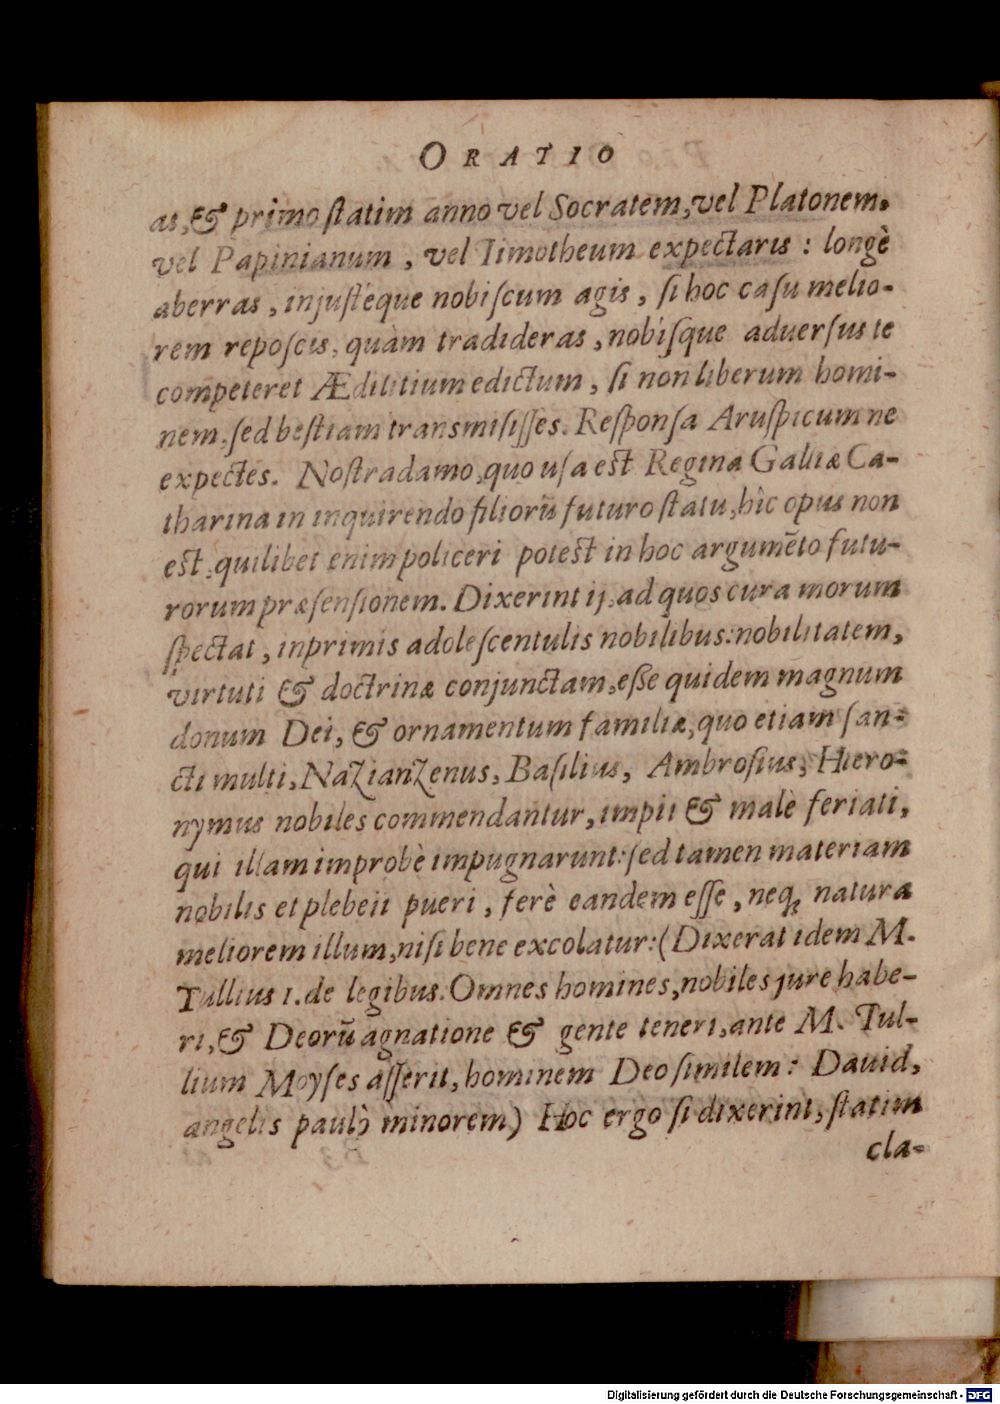 ORATIO
as, & primo ſtatim anno vel Socratem, vel Platonem.
vel Papinianum, vel Timotheum expectaris: longè
aberras, injuſtéque nobiſcum agis, ſi hoc caſu melio-
rem repoſcis, quàm tradideras, nobíſque aduerſus te
competeret Ædilitium edictum, ſi non liberum homi-
nem, ſed beſtiam transmiſiſſes. Reſponſa Aruſpicum ne
expectes. Noſtradamo, quo uſa est Regina Galliæ Ca-
tharina in inquirendo filiorũ futuro ſtatu, hîc opus non
est, quilibet enim policeri potest in hoc argumẽto futu-
rorum præſenſionem. Dixerint ij, ad quos cura morum
ſpectat, inprimis adoleſcentulis nobilibus: nobilitatem,
virtuti & doctrinæ conjunctam, eſſe quidem magnum
donum Dei, & ornamentum familiæ, quo etiam ſan-
cti multi, Nazianzenus, Baſilius, Ambroſius, Hiero-
nymus nobiles commendantur, impii & malè feriati,
qui illam improbè impugnarunt: ſed tamen materiam
nobilis et plebeii pueri, ferè eandem eſſe, neq; natura
meliorem illum, niſi bene excolatur: (Dixerat idem M.
Tullius 1. de legibus. Omnes homines, nobiles jure habe-
ri, & Deorũ agnatione & gente teneri, ante M. Tul-
lium Moyſes aſſerit, hominem Deo ſimilem: Dauid,
angelis paulò minorem) Hoc ergo ſi dixerint, ſtatim
cla-
Digitalisierung gefördert durch die Deutsche Forschungsgemeinschaft - DFG